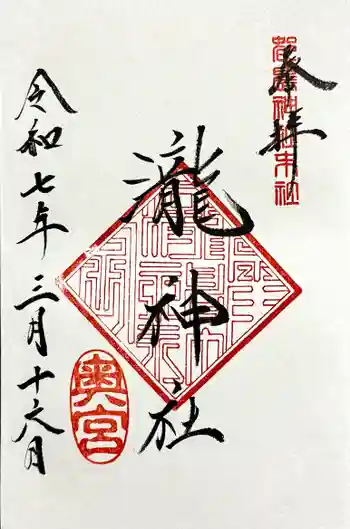 奉拝
都農神社末社
瀧神社
奥宮
令和七年三月十六日